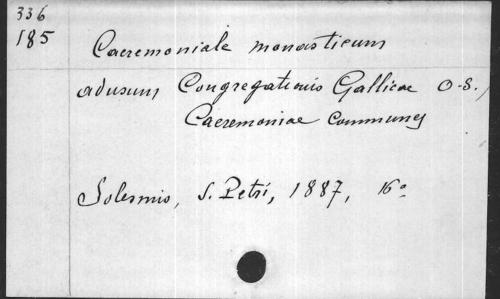 336
185
Caeremoniale monasticum
ad usum Congregationis Gallicae O.S.
Caeremoniae communes
Solesmis, S. Petri, 1887, 16º